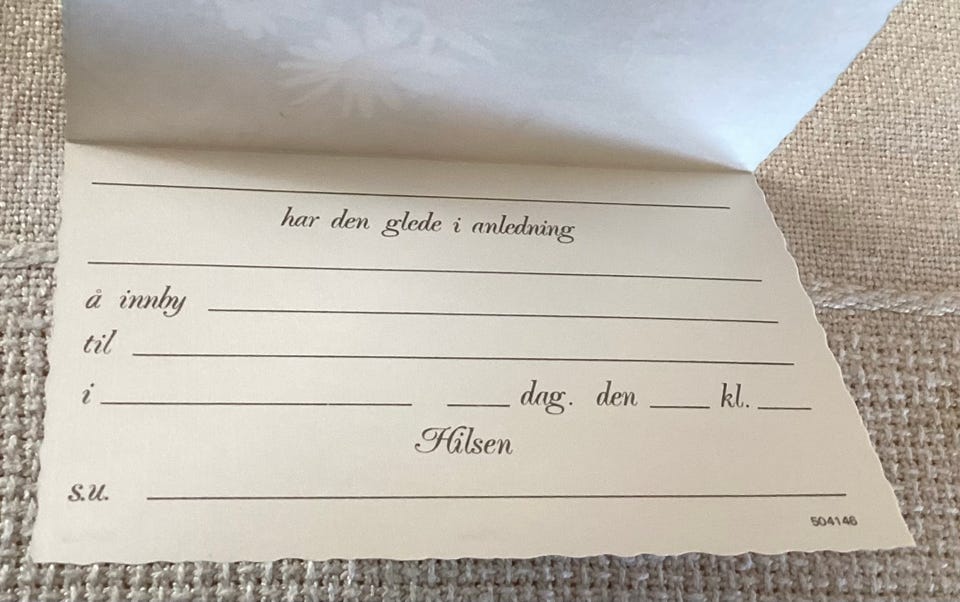 har den glede i anledning
å innby
til
i dag. den kl.
Hilsen
s.u.
504146